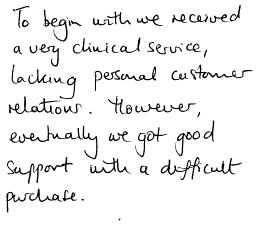 To begin with we received
a very clinical service,
lacking personal customer
relations. However,
eventually we got good
support with a difficult
purchase.